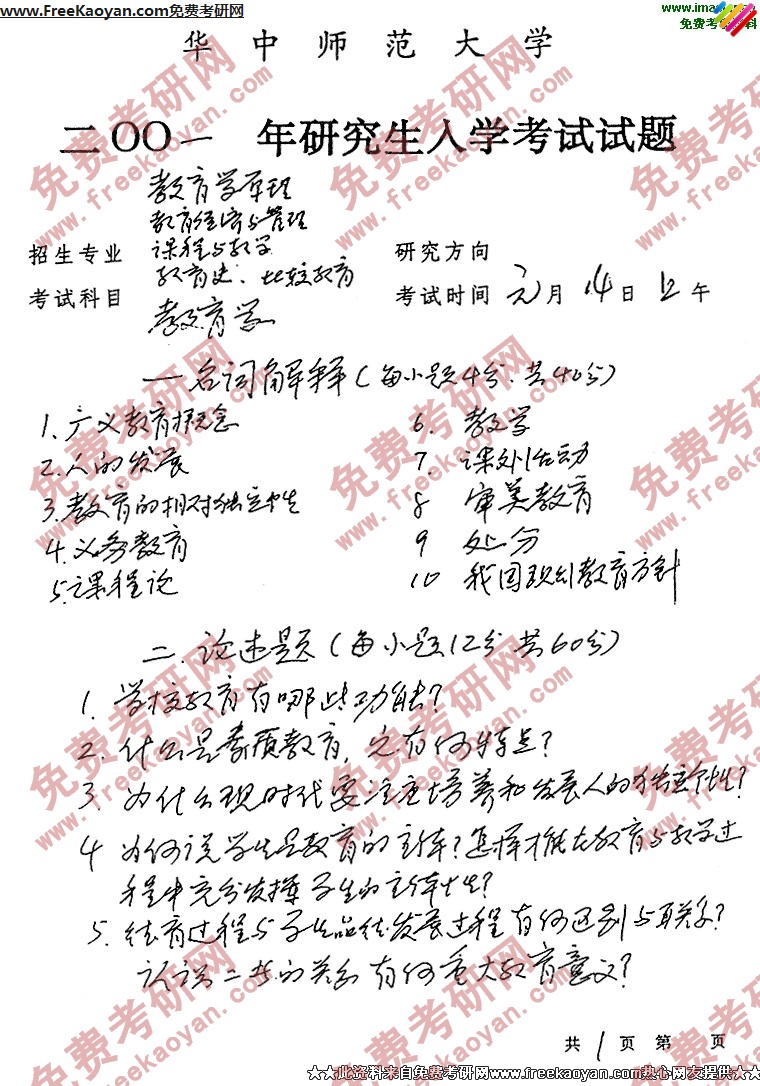 www.FreeKaoyan.com免费考研网
www.ima
免费考 料
华中师范大学
二〇〇一 年研究生入学考试试题
教育学原理
教育经济与管理
招生专业 课程与教学 研究方向
教育史、比较教育
考试科目 教育学 考试时间 元月 14日 上午
一 名词解释(每小题4分.共40分)
1. 广义教育概念
2. 人的发展
3. 教育的相对独立性
4. 义务教育
5. 课程论
6. 教学
7. 课外活动
8 审美教育
9 处分
10 我国现行教育方针
二. 论述题(每小题12分 共60分)
1. 学校教育有哪些功能?
2. 什么是素质教育,它有何特点?
3. 为什么现时代要注重培养和发展人的独立个性?
4 为何说学生是教育的主体?怎样才能在教育与教学过
程中充分发挥学生的主体性?
5. 德育过程与学生品德发展过程有何区别与联系?
认识二者的关系有何重大教育意义?
共 1 页 第 页
★★此资料来自免费考研网www.freekaoyan.com热心网友提供★★
免费考研网
www.freekaoyan.com